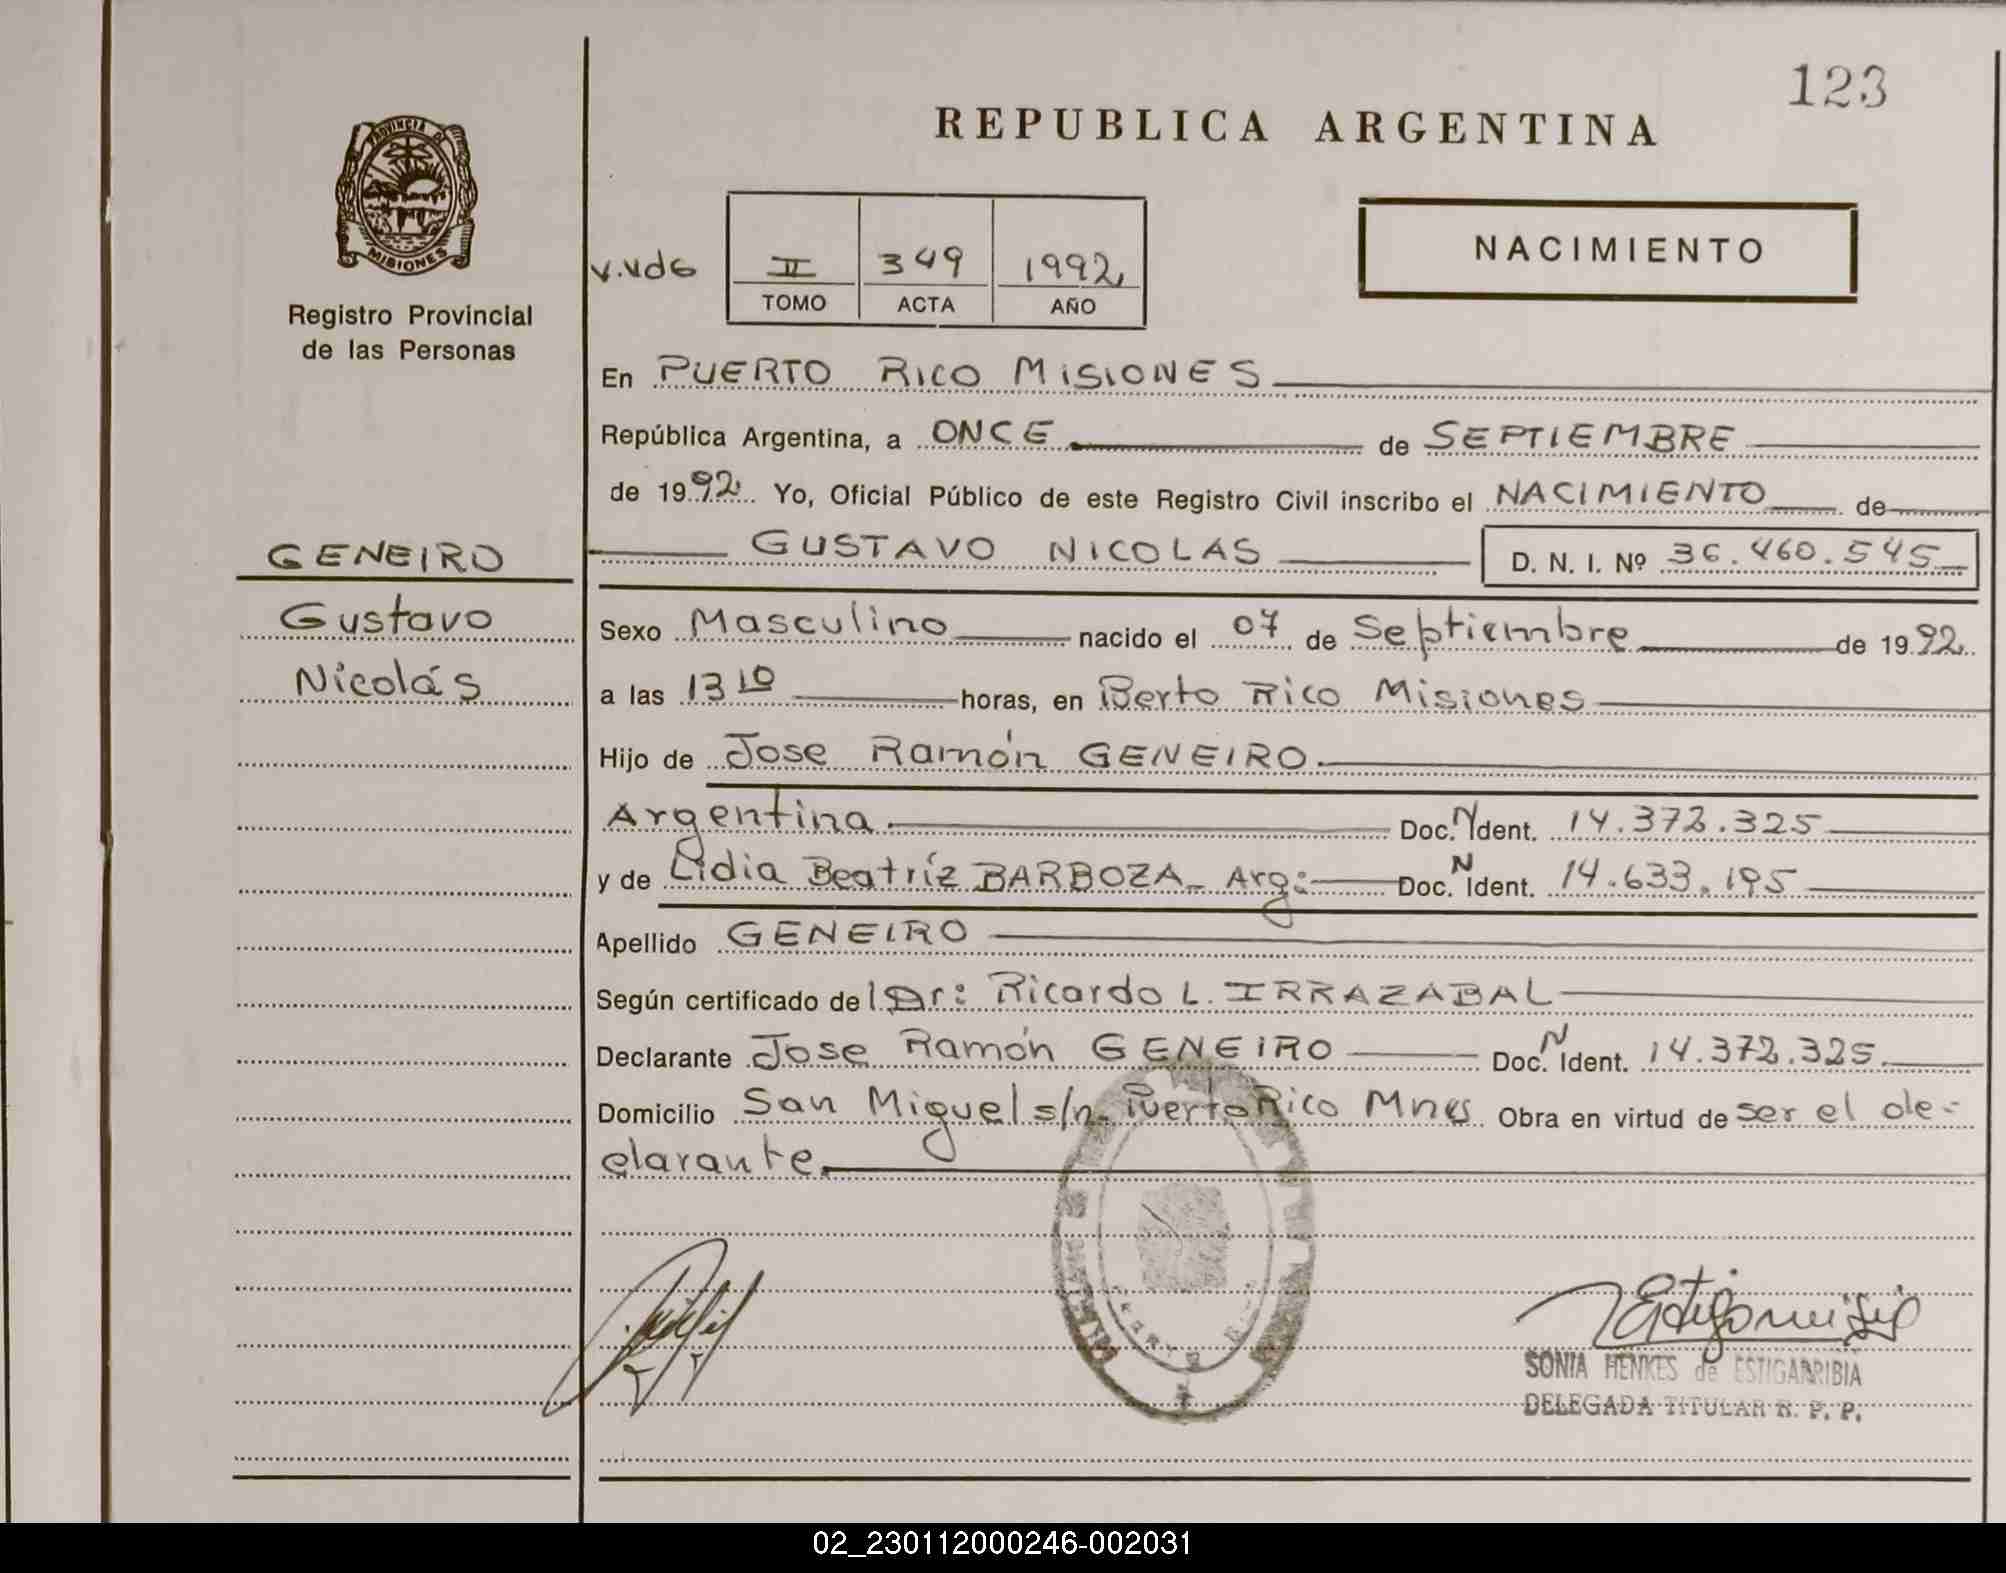 123
REPUBLICA ARGENTINA
PROVINCIA DE
MISIONES
Registro Provincial
de las Personas
II 349 1992
TOMO ACTA AÑO
NACIMIENTO
En PUERTO RICO MISIONES
República Argentina, a ONCE de SEPTIEMBRE
de 1992 Yo, Oficial Público de este Registro Civil inscribo el NACIMIENTO de
GUSTAVO NICOLAS D. N. I. Nº 36.460.545
GENEIRO
Gustavo
Nicolás
Sexo Masculino nacido el 07 de Septiembre de 1992
a las 13 10 horas, en Perto Rico Misiones
Hijo de Jose Ramón GENEIRO
Argentina Doc. N Ident. 14.372.325
y de Lidia Beatríz BARBOZA Arg: Doc. N Ident. 14.633.195
Apellido GENEIRO
Según certificado del Dr: Ricardo L. IRRAZABAL
Declarante Jose Ramón GENEIRO Doc. N Ident. 14.372.325
Domicilio San Miguel s/n. Puerto Rico Mnes Obra en virtud de ser el de-
clarante.
SONIA HENKES de ESTIGARRIBIA
DELEGADA TITULAR R. P. P.
02_230112000246-002031